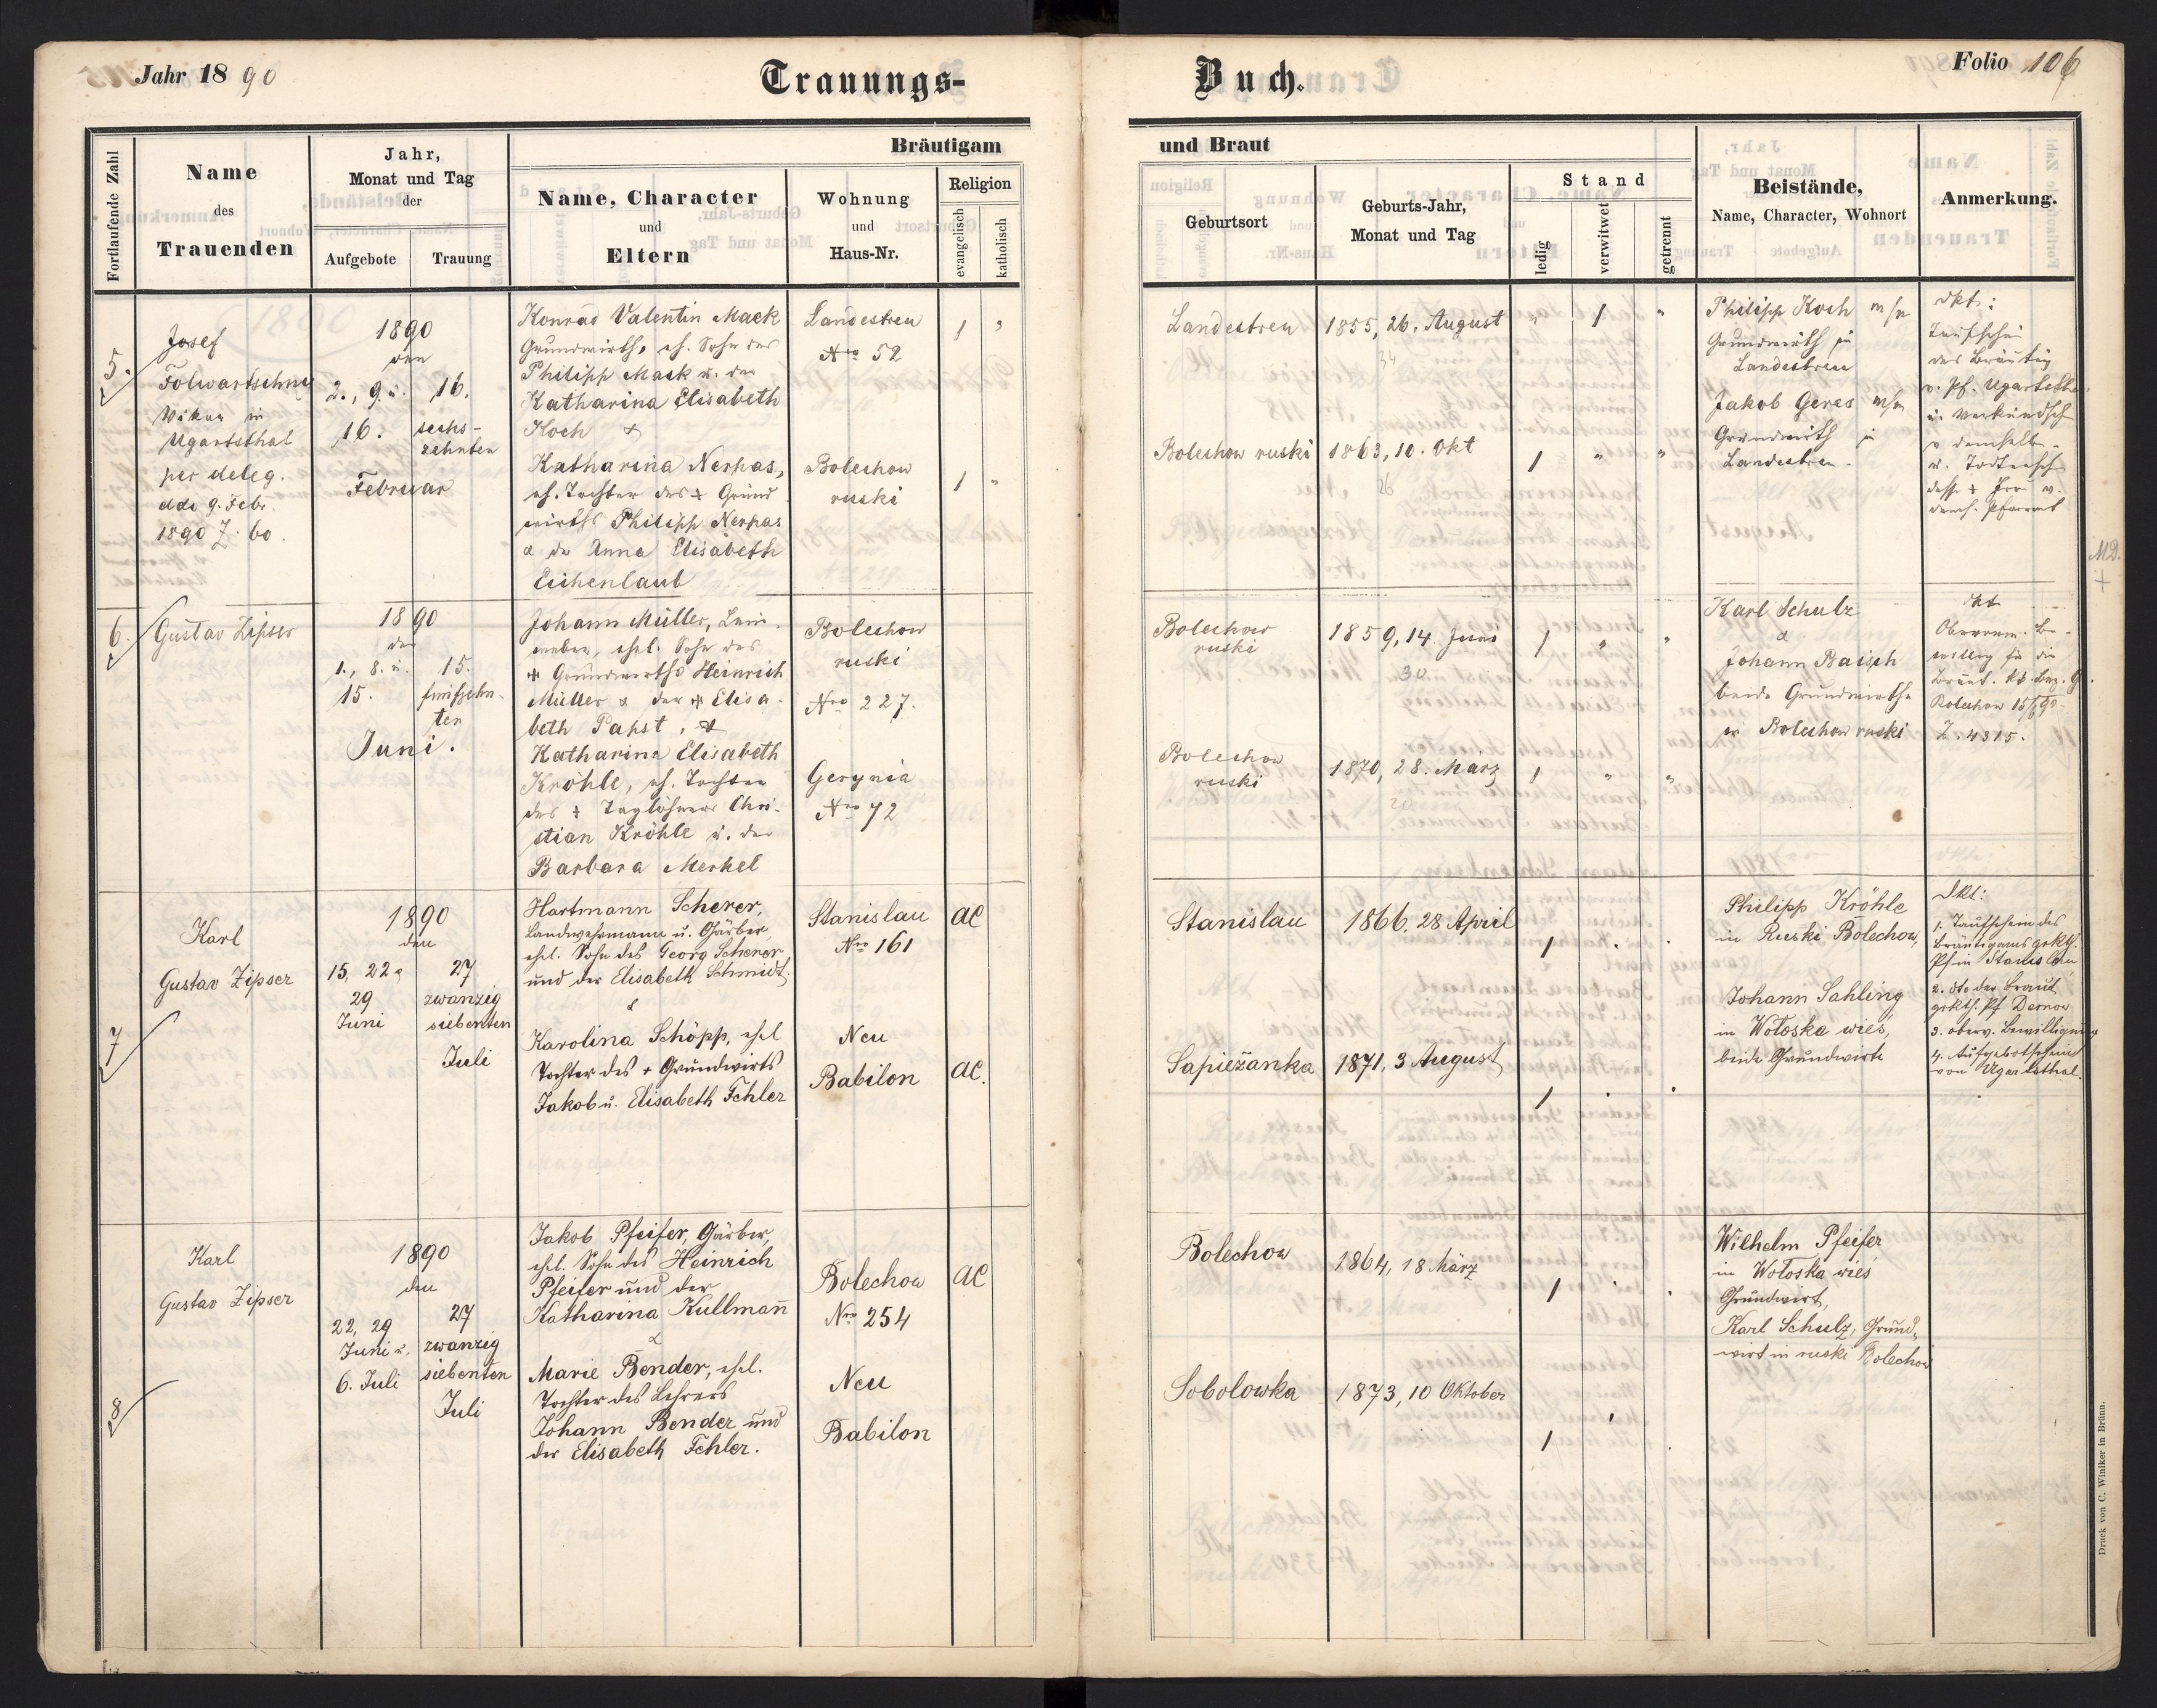 Jahr 1890
Trauungs-
Buch.
Folio 106
Fortlaufende Zahl
Name
des
Trauenden
Jahr,
Monat und Tag
der
Aufgebote
Trauung
Bräutigam
Name, Character
und
Eltern
Wohnung
und
Haus-Nr.
Religion
evangelisch
katholisch
und Braut
Geburtsort
Geburts-Jahr,
Monat und Tag
Stand
ledig
verwitwet
getrennt
Beistände,
Name, Character, Wohnort
Anmerkung.
5.
Josef
Folwartschny
Vikar in
Ugartsthal
per deleg.
ddo 9. Febr.
1890 Z. 60.
1890
den
2., 9. u. 16.
16. sechs-
zehnten
Februar
Konrad Valentin Mack
Grundwirth, eh. Sohn des
Philipp Mack u. der
Katharina Elisabeth
Koch &
Katharina Nerpas,
eh. Tochter des + Grund
wirths Philipp Nerpas
& der Anna Elisabeth
Eichenlaub
Landestreu
Nro 52
Bolechow
ruski
1 "
1 "
Landestreu
1855, 26. August
34
" 1 "
Bolechow ruski
1863, 10. Okt
26
1 " "
Philipp Koch m/p
Grundwirth in
Landestreu
Jakob Geres m/p
Grundwirth in
Landestreu.
dkt:
Taufschein
des Bräutig
v. Pf. Ugartsthal
u. Verkündsch
v demselb-
u. Todtensch
M.D.
+
6.
Gustav Zipser
1890
den
1., 8. u. 15.
15. fünfzehn-
ten
Juni.
Johann Müller, Lein-
weber, ehel. Sohn des
+ Grundwirths Heinrich
Müller & der + Elisa-
beth Pabst, &
Katharina Elisabeth
Kröhle, eh. Tochter
des + Taglöhners Chri-
stian Kröhle u. der
Barbara Merkel
Bolechow
ruski
Nro 227.
Gerynia
Nro 72
Bolechow
ruski
1859, 14. Juni
30
1 " "
Bolechow
ruski
1870, 28. März
1 " "
Karl Schulz
&
Johann Baisch
beide Grundwirthe
in Bolechow ruski
Bolechow 15/6 90
Z. 4315.
7
Karl
Gustav Zipser
1890
den
15, 22 & 27
29 zwanzig
Juni siebenten
Juli
Hartmann Scherer,
Landwehrmann u. Gärber,
ehel. Sohn des Georg Scherer
und der Elisabeth Schmidt.
&
Karolina Schöpp, ehel
Tochter des + Grundwirts
Jakob u. Elisabeth Fehler
Stanislau
Nro 161
AC
Neu
Babilon
AC.
Stanislau
1866, 28 April
1
Sapiežanka
1871, 3 August
1
Philipp Kröhle
in Ruski Bolechow,
Johann Sahling
in Wołoska wieś,
beide Grundwirte
Dkt:
1. Taufschein des
Bräutigams grkth.
Pf in Stanislau
2. dto der Braut
grkth. Pf Dernow
3. oberv. Bewilligung
4. Aufgebotschein
von Ugartsthal.
8
Karl
Gustav Zipser
1890
den
22, 29 27
Juni u. zwanzig
6. Juli siebenten
Juli
Jakob Pfeifer, Gärber,
ehel. Sohn des Heinrich
Pfeifer und der
Katharina Kullmann
&
Marie Bender, ehel.
Tochter des Lehrers
Johann Bender und
der Elisabeth Fehler.
Bolechow
Nro 254
AC
Neu
Babilon
Bolechow
1864, 18 März
1
Sobolowka
1873, 10 Oktober
1
Wilhelm Pfeifer
in Wołoska wieś
Grundwirt,
Karl Schulz, Grund-
wirt in ruski Bolechow
Druck von C. Winiker in Brünn.